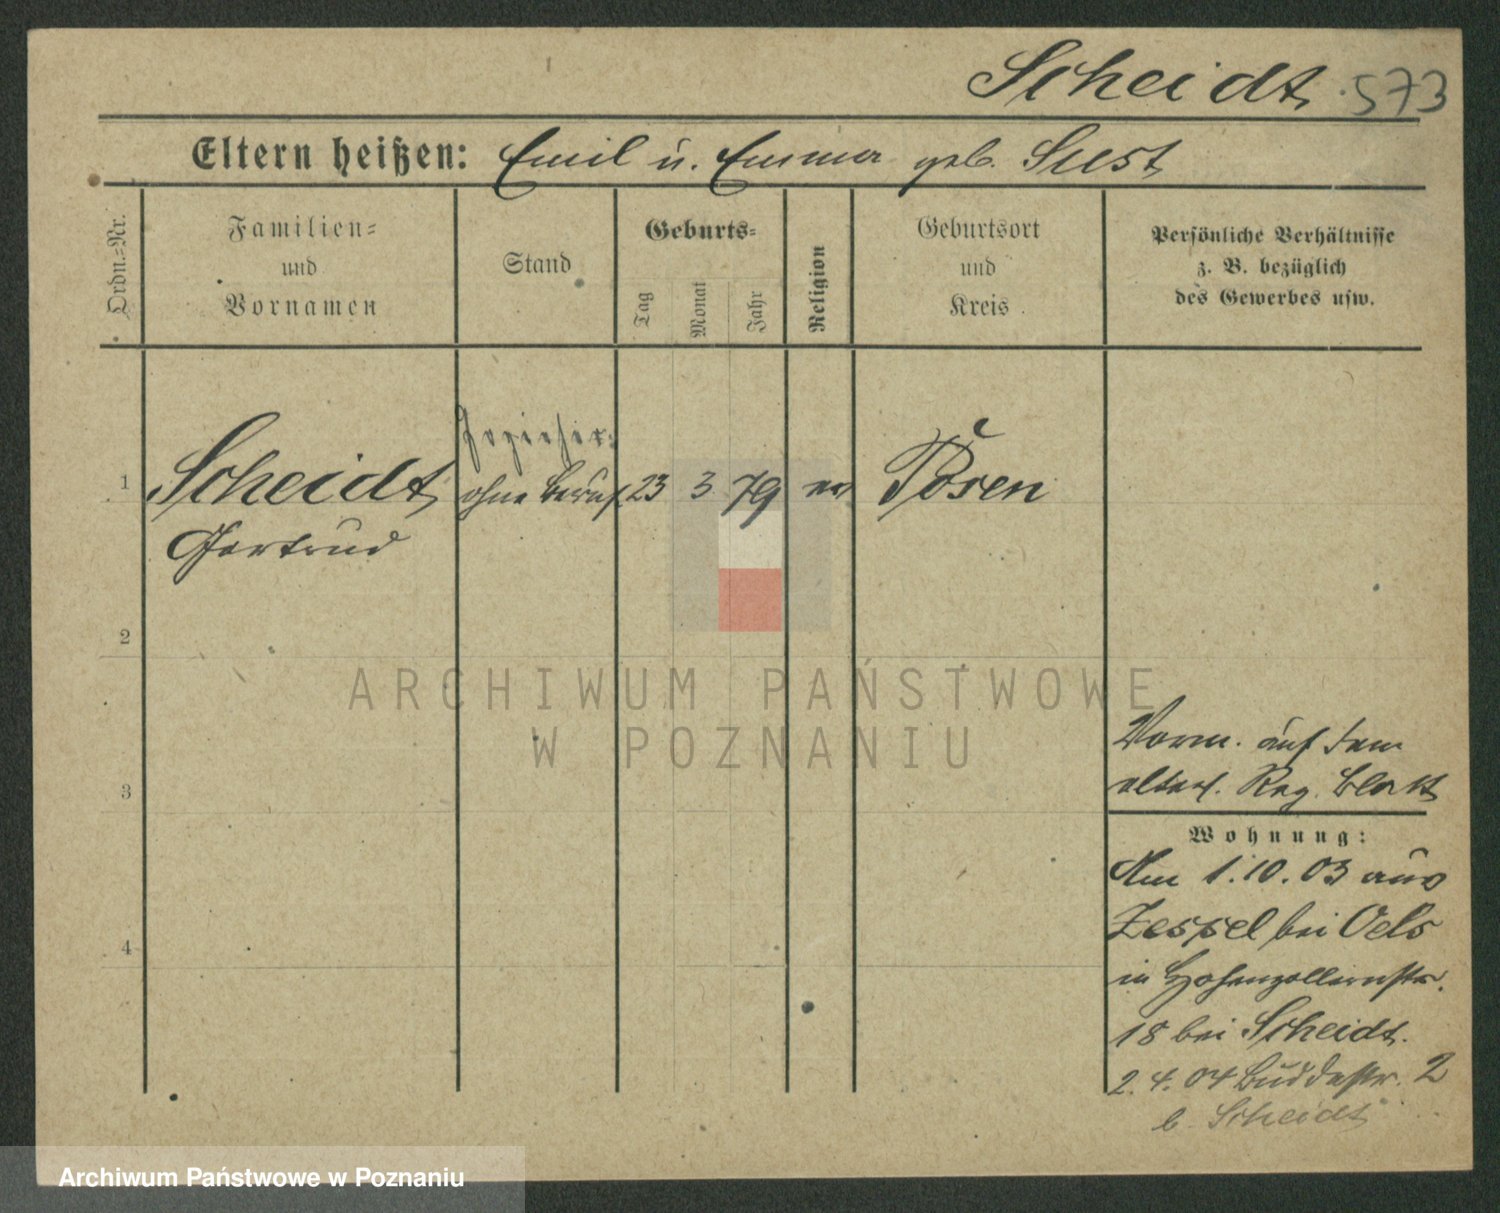 Scheidt 573
Eltern heißen: Emil u. Emma geb. Sust
Ordn.-Nr.
Familien-
und
Vornamen
Stand
Geburts-
Tag
Monat
Jahr
Religion
Geburtsort
und
Kreis
Persönliche Verhältnisse
z. B. bezüglich
des Gewerbes usw.
Erzieher.
1 Scheidt ohne Beruf 23 3 79 ev Posen
Gertrud
2
ARCHIWUM PAŃSTWOWE
W POZNANIU
Verm. auf dem
elterl. Reg. Blatt
3
Wohnung:
Am 1.10.03 aus
Zessel bei Oels
4
in Hohenzollernstr.
18 bei Scheidt.
2.4.04 Buddestr. 2
b. Scheidt
Archiwum Państwowe w Poznaniu